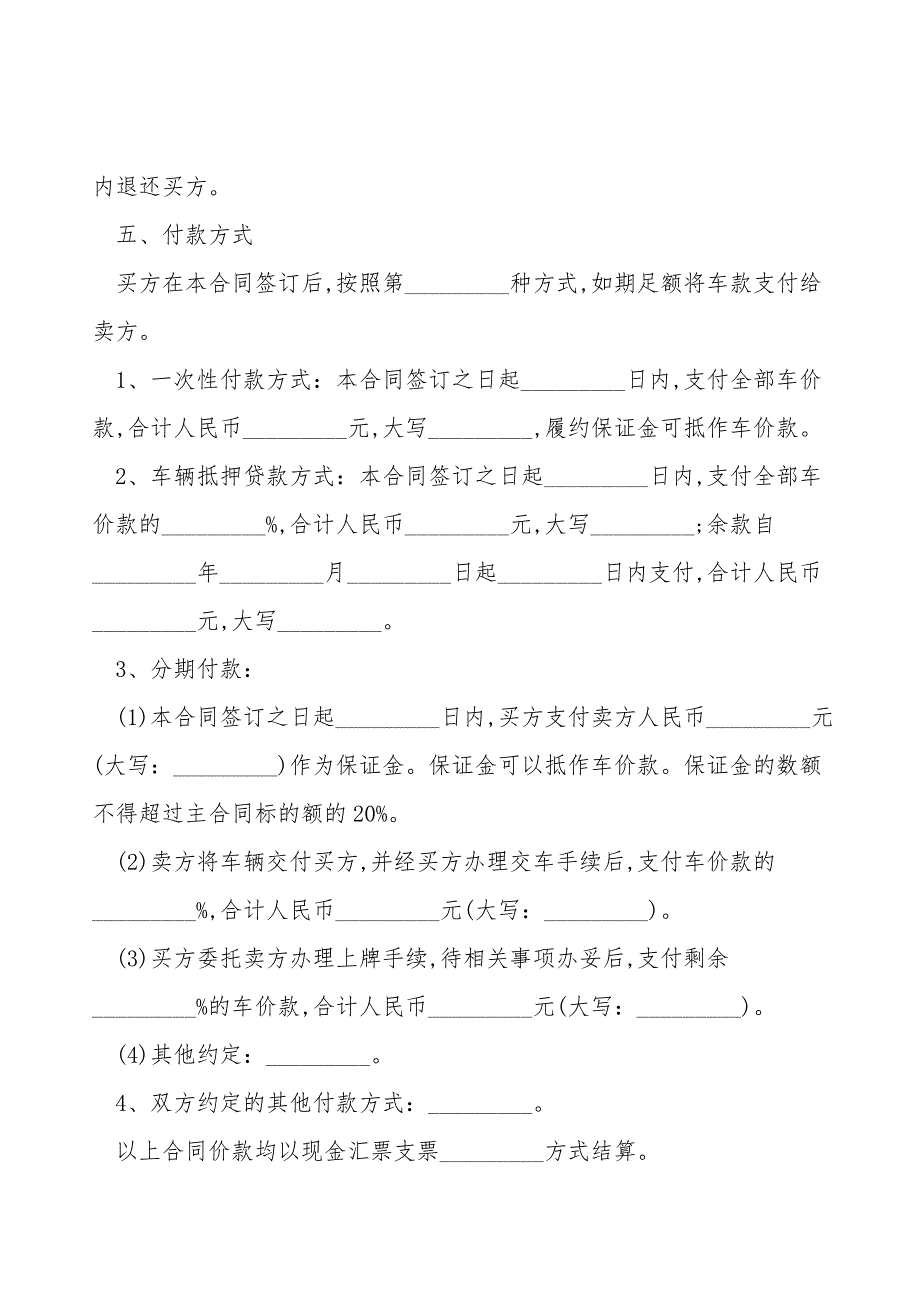 内退还买方。
五、付款方式
买方在本合同签订后,按照第_________种方式,如期足额将车款支付给
卖方。
1、一次性付款方式：本合同签订之日起_________日内,支付全部车价
款,合计人民币_________元,大写_________,履约保证金可抵作车价款。
2、车辆抵押贷款方式：本合同签订之日起_________日内,支付全部车
价款的_________%,合计人民币_________元,大写_________;余款自
_________年_________月_________日起_________日内支付,合计人民币
_________元,大写_________。
3、分期付款：
(1)本合同签订之日起_________日内,买方支付卖方人民币_________元
(大写：_________)作为保证金。保证金可以抵作车价款。保证金的数额
不得超过主合同标的额的20%。
(2)卖方将车辆交付买方,并经买方办理交车手续后,支付车价款的
_________%,合计人民币_________元(大写：_________)。
(3)买方委托卖方办理上牌手续,待相关事项办妥后,支付剩余
_________%的车价款,合计人民币_________元(大写：_________)。
(4)其他约定：_________。
4、双方约定的其他付款方式：_________。
以上合同价款均以现金汇票支票_________方式结算。